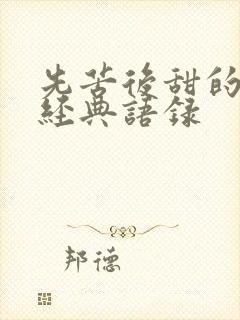 先苦後甜的
經典語録
邦德